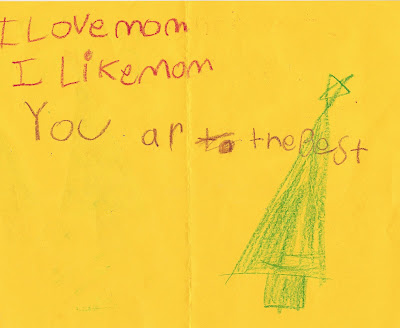 I Love mom
I Like mom
You ar the Best